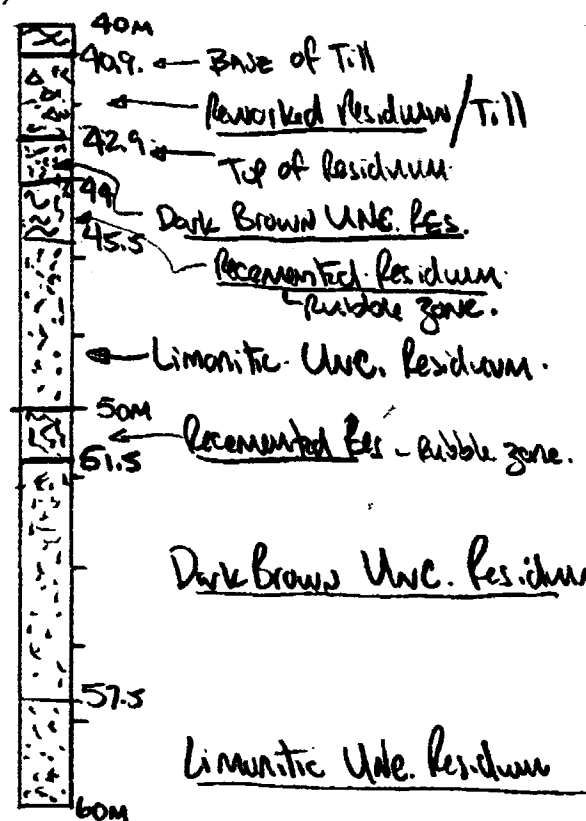 40M
40.9. Base of Till
Reworked Residuum/Till
42.9 Top of Residuum
44
Dark Brown UNC. RES.
45.5
Recemented Residuum
Rubble zone.
Limonitic UNC. Residuum.
50M
Recemented Res - Rubble zone.
51.5
Dark Brown UNC. Residuum
57.5
Limonitic UNC. Residuum
60M